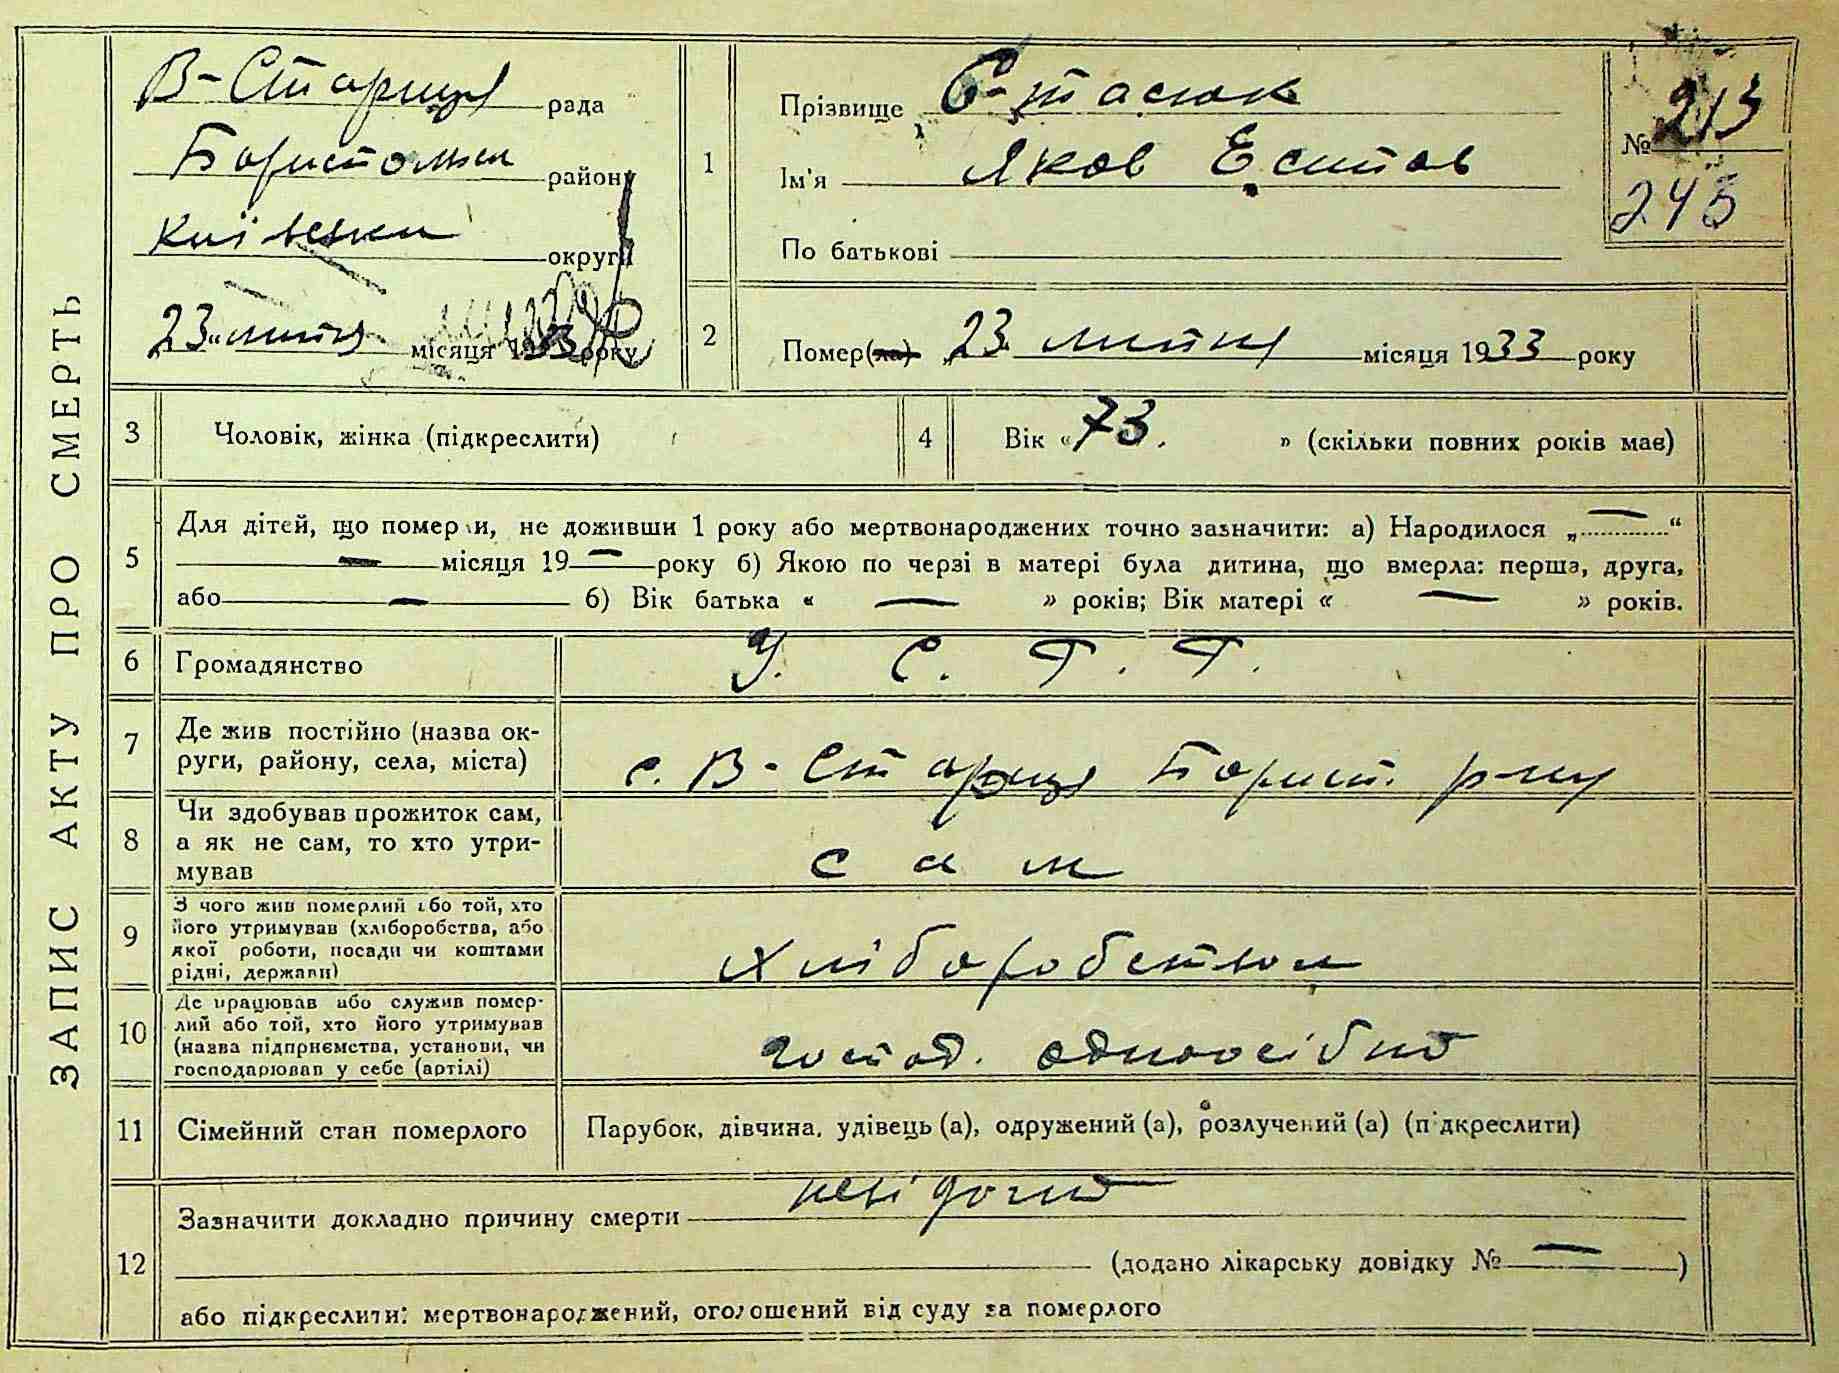 ЗАПИС АКТУ ПРО СМЕРТЬ
В-Стариця рада
Бориспольськ району
Київськи округи
23 „ липня місяця 1933 року
1
Прізвище Остасюк
Ім'я Яков Есипов
По батькові
№ 213
245
2
Помер(ла) „23“ липня місяця 1933 року
3 Чоловік, жінка (підкреслити)
4 Вік « 73. » (скільки повних років має)
5
Для дітей, що померли, не доживши 1 року або мертвонароджених точно зазначити: а) Народилося „ — “
— місяця 19 — року б) Якою по черзі в матері була дитина, що вмерла: перша, друга,
або — б) Вік батька « — » років; Вік матері « — » років.
6 Громадянство У. С. Р. Р.
7
Де жив постійно (назва ок-
руги, району, села, міста)
с. В-Стариця Борисп. р-ну
8
Чи здобував прожиток сам,
а як не сам, то хто утри-
мував
сам
9
З чого жив померлий або той, хто
його утримував (хліборобства, або
якої роботи, посади чи коштами
рідні, держави)
Хліборобством
10
Де працював або служив помер-
лий або той, хто його утримував
(назва підприємства, установи, чи
господарював у себе (артілі)
господ. одноосібно
11 Сімейний стан померлого
Парубок, дівчина, удівець (а), одружений (а), розлучений (а) (підкреслити)
12
Зазначити докладно причину смерти невідомо
(додано лікарську довідку № — )
або підкреслити: мертвонароджений, оголошений від суду за померлого